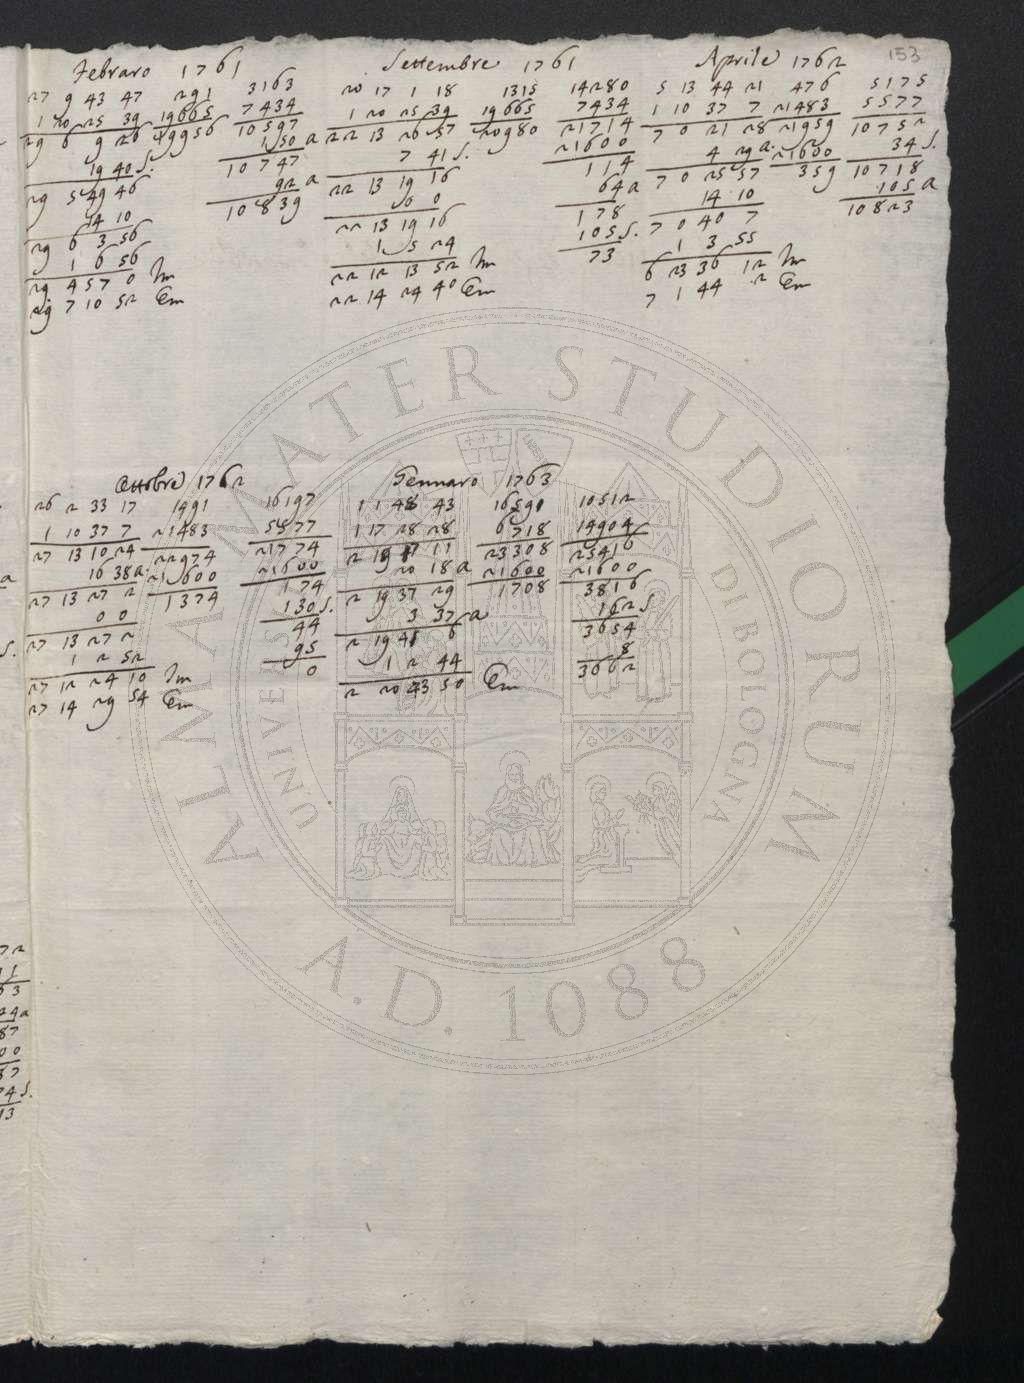 153
Febraro 1761
27 9 43 47 291 3163
1 20 25 39 19665 7434
29 6 9 26 19956 10597
150 a
19 40 S. 10747
29 5 49 46 92 a
14 10 10839
29 6 3 56
1 6 56
29 4 57 0 Im
29 7 10 52 Em
Settembre 1761
20 17 1 18 1315 14280
1 20 25 39 19665 7434
22 13 26 57 20980 21714
7 41 S. 21600
22 13 19 16 114
0 0 64 a
22 13 19 16 178
1 5 24 105 S.
22 12 13 52 Im 73
22 14 24 40 Em
Aprile 1762
5 13 44 21 476 5175
1 10 37 7 21483 5577
7 0 21 28 21959 10752
4 29 a. 21600 34 S.
7 0 25 57 359 10718
14 10 105 a
7 0 40 7 10823
1 3 55
6 23 36 12 Im
7 1 44 2 Em
Ottobre 1762
26 2 33 17 1491 16197
1 10 37 7 21483 5577
27 13 10 24 22974 21774
16 38 a. 21600 21600
27 13 27 2 1374 174
0 0 130 S.
27 13 27 2 44
1 2 52 95
27 12 24 10 Im 0
27 14 29 54 Em
Gennaro 1763
1 1 48 43 16590 10512
1 17 28 28 6718 14904
2 19 17 11 23308 25416
20 18 a 21600 21600
2 19 37 29 1708 3816
3 37 a 162 S
2 19 41 6 3654
1 2 44 8
2 20 43 50 Em 3662
ALMA MATER STUDIORUM
UNIVERSITÀ DI BOLOGNA
A.D. 1088